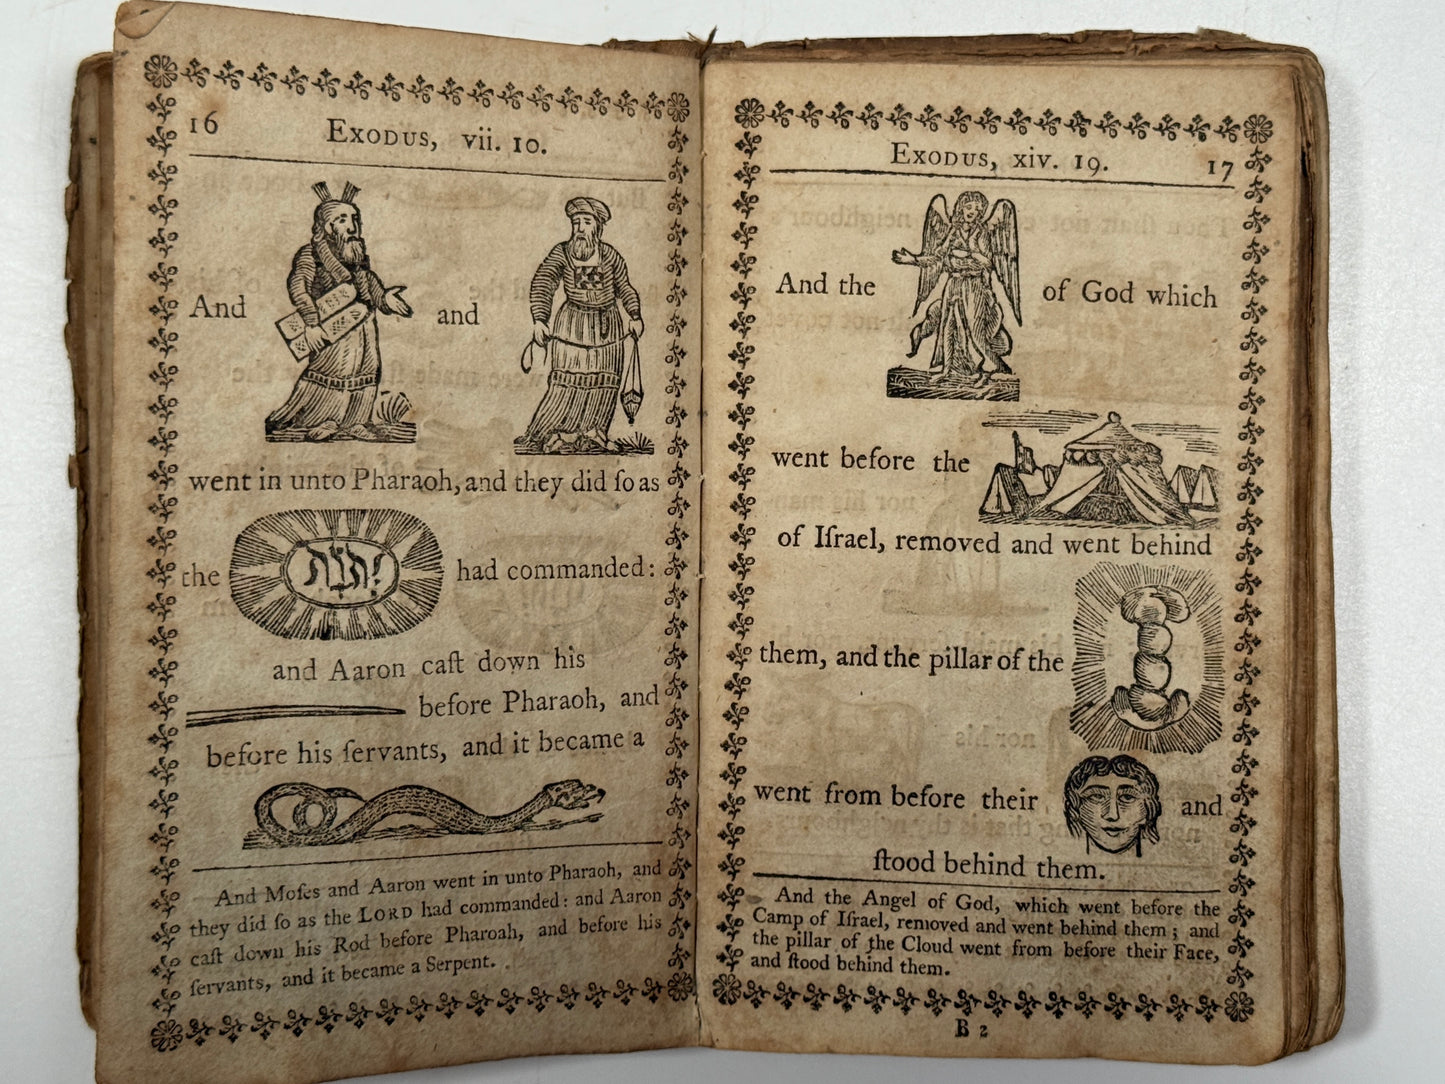 16
Exodus, vii. 10.
And and
went in unto Pharaoh, and they did ſo as
the יהוה had commanded:
and Aaron caſt down his
before Pharaoh, and
before his ſervants, and it became a
And Moſes and Aaron went in unto Pharaoh, and
they did ſo as the LORD had commanded: and Aaron
caſt down his Rod before Pharoah, and before his
ſervants, and it became a Serpent.
Exodus, xiv. 19.
17
And the of God which
went before the
of Iſrael, removed and went behind
them, and the pillar of the
went from before their and
ſtood behind them.
And the Angel of God, which went before the
Camp of Iſrael, removed and went behind them; and
the pillar of the Cloud went from before their Face,
and ſtood behind them.
B 2